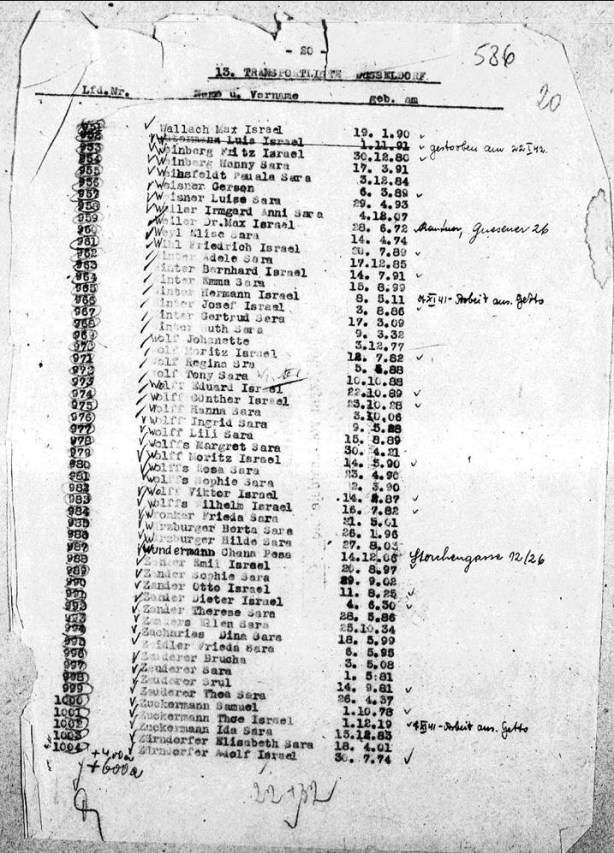 - 20 -
586
13. TRANSPORTLISTE DÜSSELDORF
20
Lfd.Nr. Name u. Vorname geb. am
951 Wallach Max Israel 19. 1.90
952 Luis Israel 1.11.91 gestorben am
953 Weinberg Fritz Israel 30.12.80
954 Weinberg Henny Sara 17. 3.91
955 Weihsfeldt Paula Sara 3.12.84
956 Weisner Gerson 6. 3.89
957 Weisner Luise Sara 29. 4.93
958 Weiler Irmgard Anni Sara 4.12.07
959 Weller Dr.Max Israel 28. 6.72 26
960 Weyl Elise Sara 14. 4.74
961 Wihl Friedrich Israel 20. 7.89
962 Winter Adele Sara 17.12.85
963 Winter Bernhard Israel 14. 7.91
964 Winter Emma Sara 15. 8.99
965 Winter Hermann Israel 8. 5.11 XI 41 - Arbeit aus. Getto
966 Winter Josef Israel 3. 8.86
967 Winter Gertrud Sara 17. 3.09
968 Winter Ruth Sara 9. 3.32
969 Wolf Johanette 3.12.77
970 Wolf Moritz Israel 12. 7.82
971 Wolf Regina Sra 5. 5.88
972 Wolf Tony Sara 10.10.88
973 Wolff Eduard Israel 22.10.89
974 Wolff Günther Israel 23.10.28
975 Wolff Hanna Sara 3.10.06
976 Wolff Ingrid Sara 9. 5.28
977 Wolff Lili Sara 15. 8.89
978 Wolffs Margret Sara 30. 4.21
979 Wolff Moritz Israel 14. 5.90
980 Wolffs Rosa Sara 23. 4.96
981 Wolffs Sophie Sara 2. 3.90
982 Wolff Viktor Israel 14. 2.87
983 Wolffs Wilhelm Israel 16. 7.82
984 Wronker Frieda Sara 21. 5.01
985 Würzburger Berta Sara 26. 1.96
986 Würzburger Hilde Sara 27. 8.03
987 Wundermann Chana Pesa 14.12.06 12/26
988 Zander Emil Israel 20. 8.97
989 Zander Sophie Sara 29. 9.02
990 Zander Otto Israel 11. 8.25
991 Zander Dieter Israel 4. 6.30
992 Zander Therese Sara 28. 5.86
993 Zanders Ellen Sara 25.10.34
994 Zacharias Dina Sara 18. 5.99
995 Zeidler Frieda Sara 6. 5.95
996 Zauderer Brucha 3. 5.08
997 Zauderer Sara 1. 5.81
998 Zauderer Srul 14. 9.81
999 Zauderer Thea Sara 26. 4.37
1000 Zuckermann Samuel 1.10.78
1001 Zuckermann Theo Israel 1.12.19 XII 41 - Arbeit aus. Getto
1002 Zuckermann Ida Sara 13.12.83
1003 Zürndorfer Elisabeth Sara 18. 4.01
1004 Zürndorfer Adolf Israel 30. 7.74
+400a
+600a
22+32